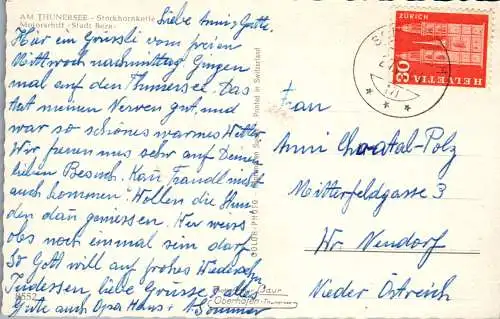 AM THUNERSEE - Stockhornkette
Motorschiff "Stadt Bern"
Liebe Anni, Grette.
Här ein Grüssli vom freien
Mittwoch nachmittag. Gingen
mal essen auf dem Thunersee. Das
hat meinen Nerven gut, und
war so schönes warmes Wetter
Wir freuen uns sehr auf Deinen
lieben Besuch. Kan Fraudl nich
auch kommen. Wollen die Stun
den dan geniessen. Wer weiss
obs noch einmal sein darf.
So Gott will auf frohes Wiedersehn
Indessen, liebe Grüsse & alles
Gute auch Opa Hans. Sommer
9552
Baur
Oberhofen
COLOR-PHOTO
Printed in Switzerland
ZÜRICH
30
HELVETIA
Frau
Anni Polz
Mitterfeldgasse 3
Wr Neudorf
Nieder Östreich